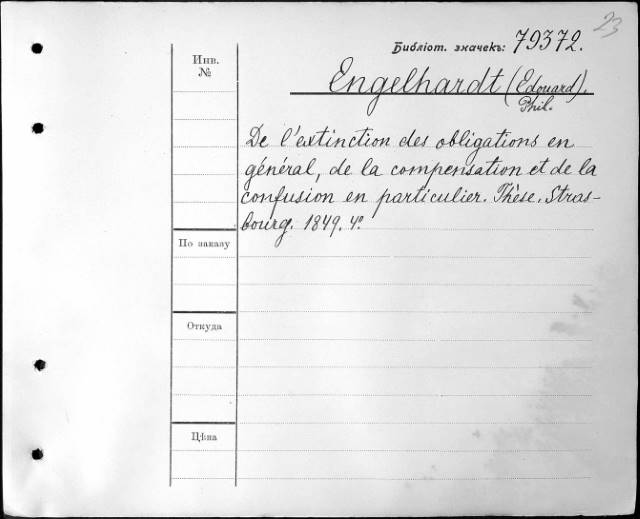 23
Библіот. значекъ: 79372.
Инв.
№
Engelhardt (Edouard).
Phil.
De l'extinction des obligations en
général, de la compensation et de la
confusion en particulier. Thèse. Stras-
bourg. 1849. 4°
По заказу
Откуда
Цѣна